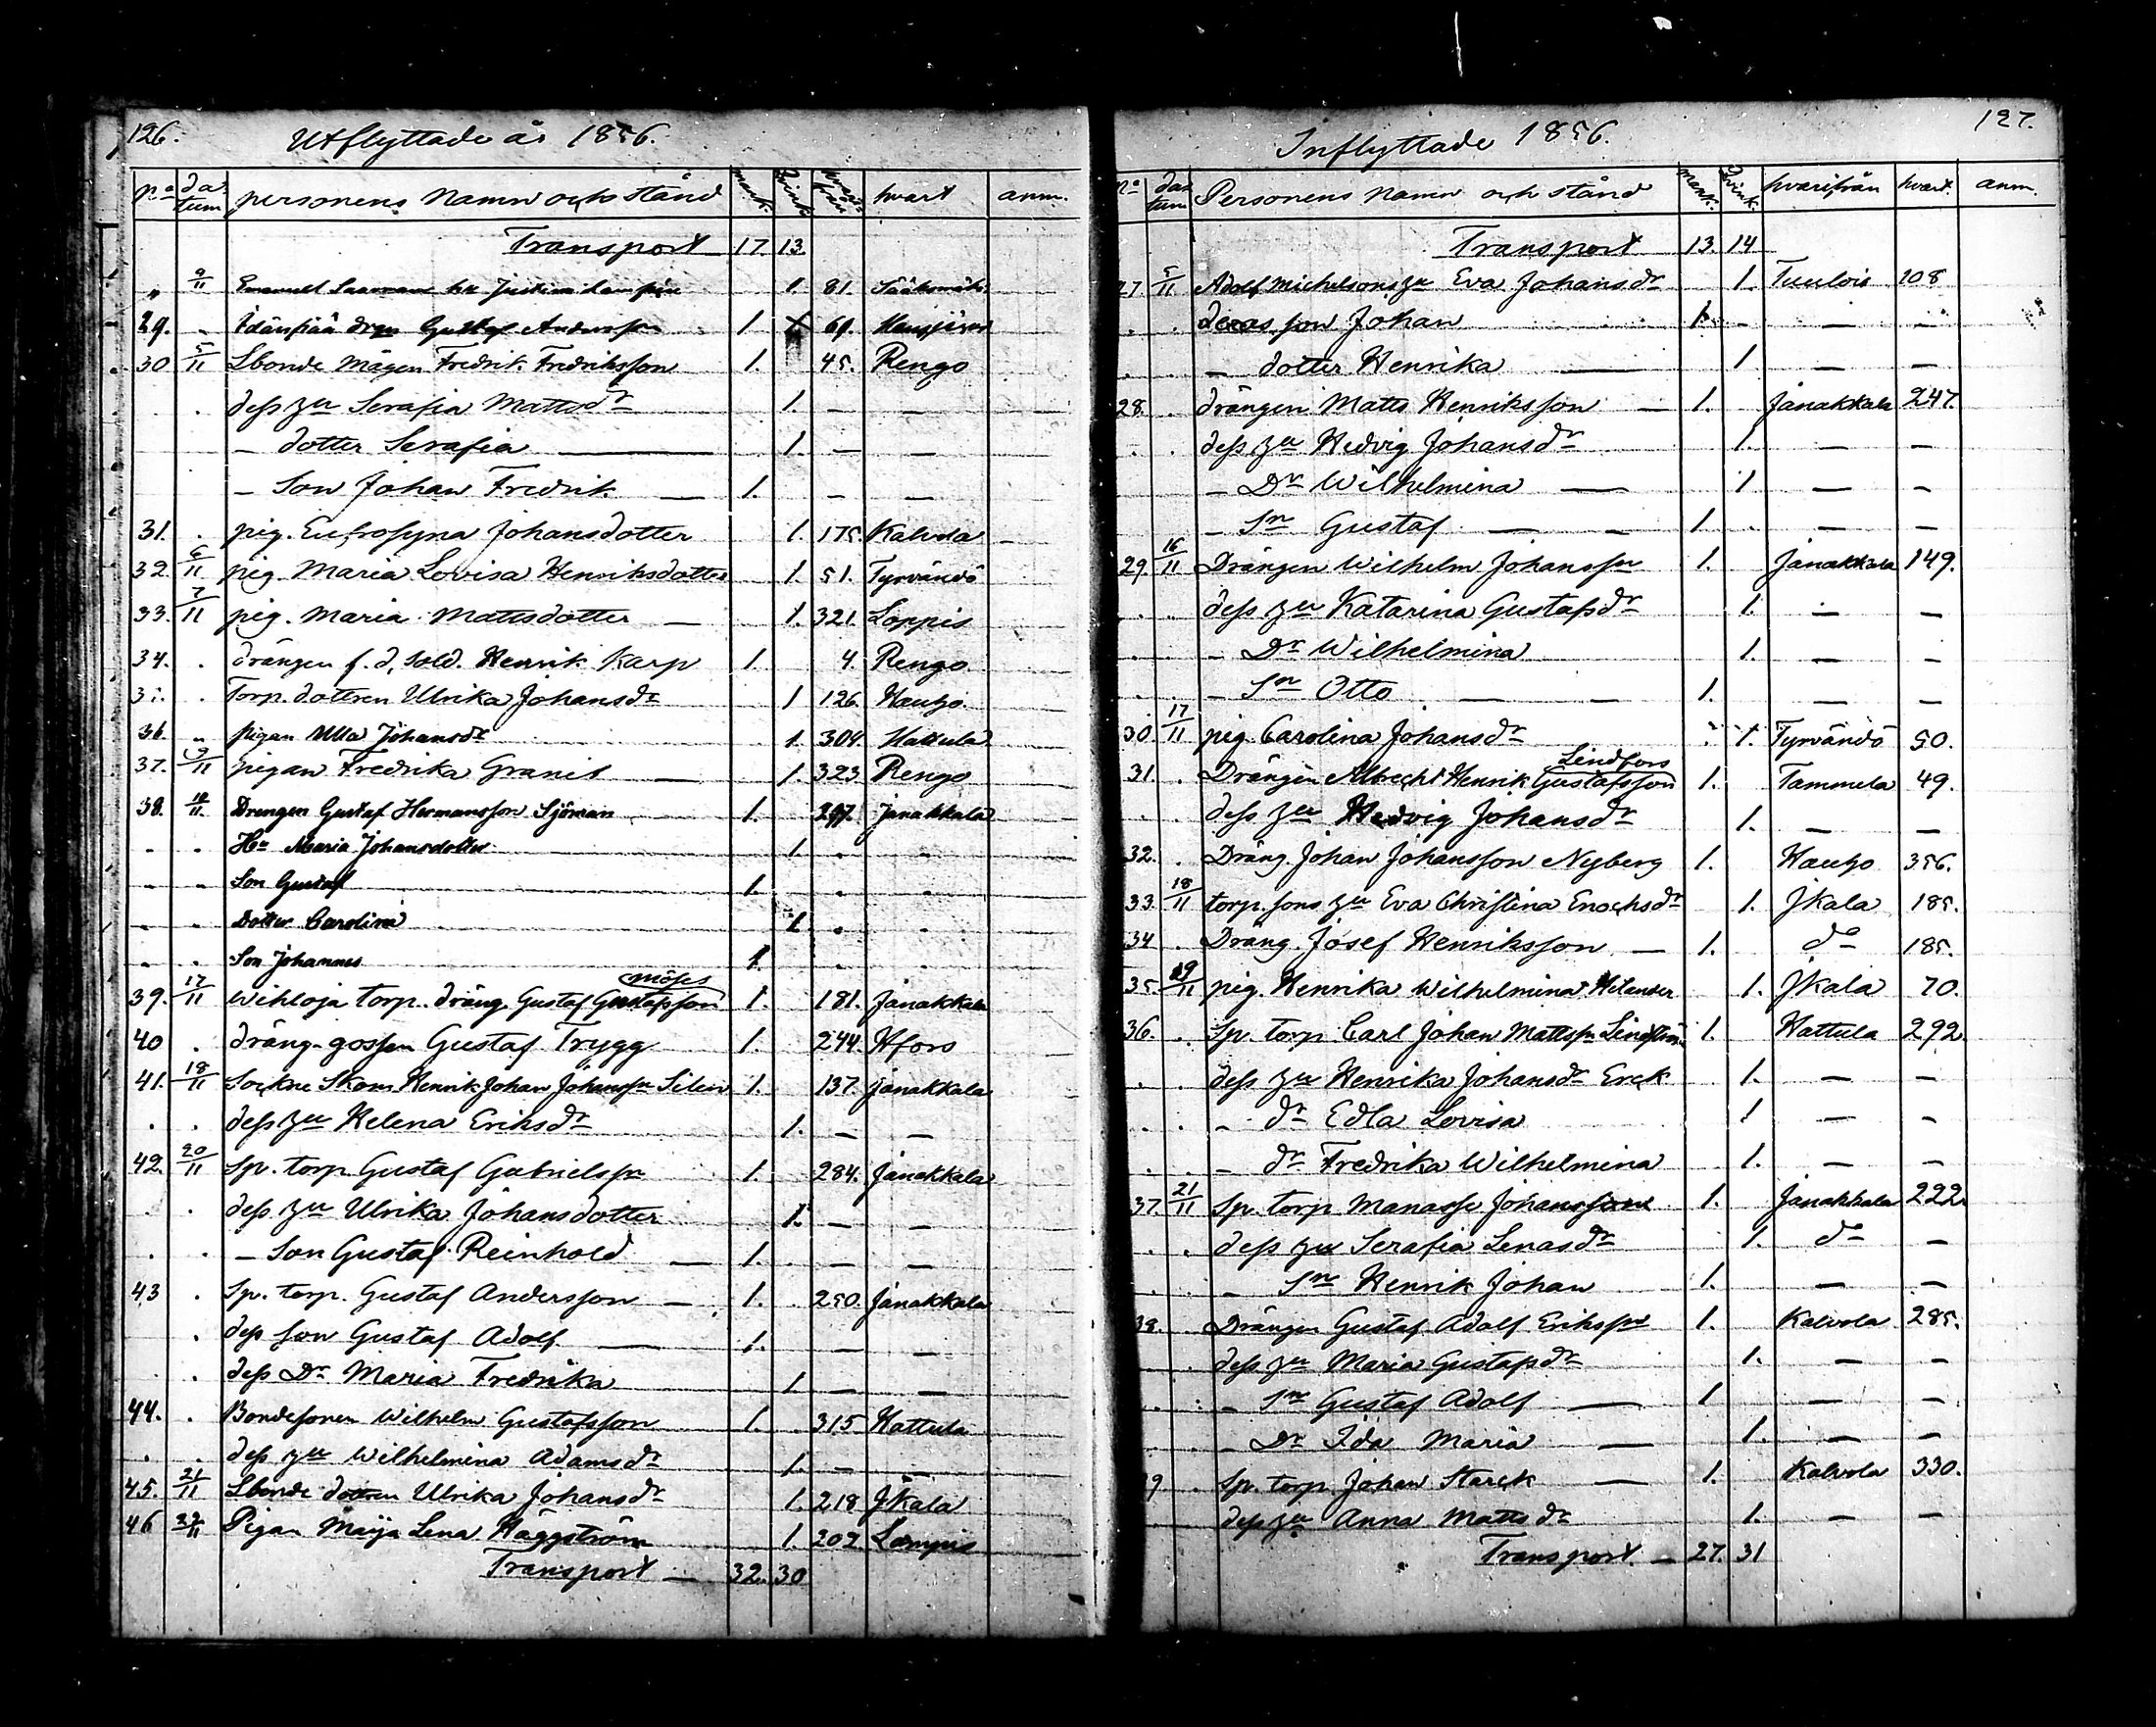 126.
Utflyttade år 1856.
no datum personens namn och stånd mank. qvink. hvart anm.
Transport 17. 13.
" 9/11 Emanuel hu Justina 1. 81. Sääksmäki
29. " drgn Gustaf Andersson 1. 61. Hausjärvi
30 5/11 Lbonde mågen Fredrik Fredriksson 1. 45. Rengo
. dess hu Serafia Mattsdr 1. — —
— dotter Serafia — 1. — —
— Son Johan Fredrik — 1. — —
31. . pig. Eufrosyna Johansdotter 1. 175. Kalvola —
32. 6/11 pig. Maria Lovisa Henriksdotter 1. 51. Tyrvändö
33. 7/11 pig. Maria Mattsdotter — 1. 321. Loppis
34. . drängen f. d. sold. Henrik Karp 1. 4. Rengo
35. . Torp. dottren Ulrika Johansdr 1 126. Hauho.
36. " pigan Ulla Johansdr 1. 304. Hattula
37. 9/11 pigan Fredrika Granit — 1. 323 Rengo
38. 10/11. Drengen Gustaf Hermansson Sjöman 1. 297. Janakkala
" " Hu Maria Johansdotter 1. " "
" " Son Gustaf 1. " "
" " Dotter Carolina 1. " "
" " Son Johannes 1. " "
möses
39. 17/11 Wihloja torp. dräng Gustaf Gustafsson 1. 181. Janakkala
40 . dräng-gossen Gustaf Trygg 1. 244. Hfors
41. 18/11 Sockne Skom. Henrik Johan Johansson Silen 1. 137. Janakkala
. . dess hu Helena Eriksdr 1. — —
42. 20/11 Sp. torp. Gustaf Gabrielsson 1. 284. Janakkala
. . dess hu Ulrika Johansdotter 1. — —
. . — Son Gustaf Reinhold — 1. — —
43 . Sp. torp. Gustaf Andersson — 1. 250. Janakkala
. dess son Gustaf Adolf — 1. — —
. . dess Dr Maria Fredrika 1. — —
44. . Bondesonen Wilhelm Gustafsson 1. 315 Hattula
. . dess hu Wilhelmina Adamsdr 1. — —
45. 21/11 Lbonde dottren Ulrika Johansdr 1. 218 JKala
46 Pigan Maija Lena Häggström 1. 202 Lampis
Transport — 32. 30
127.
Inflyttade 1856.
no datum Personens namn och stånd mank. qvink. hvarifrån hvart. anm.
Transport 13. 14
27. 5/11 Adolf Michelsons hu Eva Johansdr 1. Tuulois 108
. . deras son Johan 1. — — —
. . — dotter Henrika — 1 — —
28. . drängen Matts Henriksson — 1. Janakkala 247.
. . dess hu Hedvig Johansdr 1. — —
— Dr Wilhelmina — 1 — —
— Sn Gustaf — — 1. . — —
29. 16/11 Drängen Wilhelm Johansson 1. Janakkala 149.
. . dess hu Katarina Gustafsdr 1. — —
. . — Dr Wilhelmina 1. — —
. . — Sn Otto — — 1. — —
30. 17/11 pig. Carolina Johansdr 1. Tyrvändö 50.
Lindfors
31. . Drängen Albrecht Henrik Gustafsson 1. Tammela 49.
. . dess hu Hedvig Johansdr 1. — —
32. . Dräng. Johan Johansson Nyberg 1. Hauho 356.
33. 18/11 torp. sons hu Eva Christina Enochsdr 1. JKala 185.
34 . Dräng. Josef Henriksson — 1. do 185.
35. 19/11 pig. Henrika Wilhelmina Helander 1. JKala 70.
36. . Sp. torp. Carl Johan Mattsson Lindström 1. Hattula 292.
. . dess hu Henrika Johansdr Erck 1. — —
. . — dr Edla Lovisa 1 — —
. . — dr Fredrika Wilhelmina 1. — —
37. 21/11 Sp. torp Manasse Johansson 1. Janakkala 222.
. . dess hu Serafia Lenasdr 1. do —
. . — Sn Henrik Johan 1. — —
38. . Drängen Gustaf Adolf Eriksson 1. Kalvola 285.
. . dess hu Maria Gustafsdr 1. — —
. . — Sn Gustaf Adolf — 1. — —
. . — Dr Ida Maria — 1. — —
39 . Sp. torp. Johan Starck — 1. Kalvola 330.
. . dess hu Anna Mattsdr 1. — —
Transport. — 27. 31